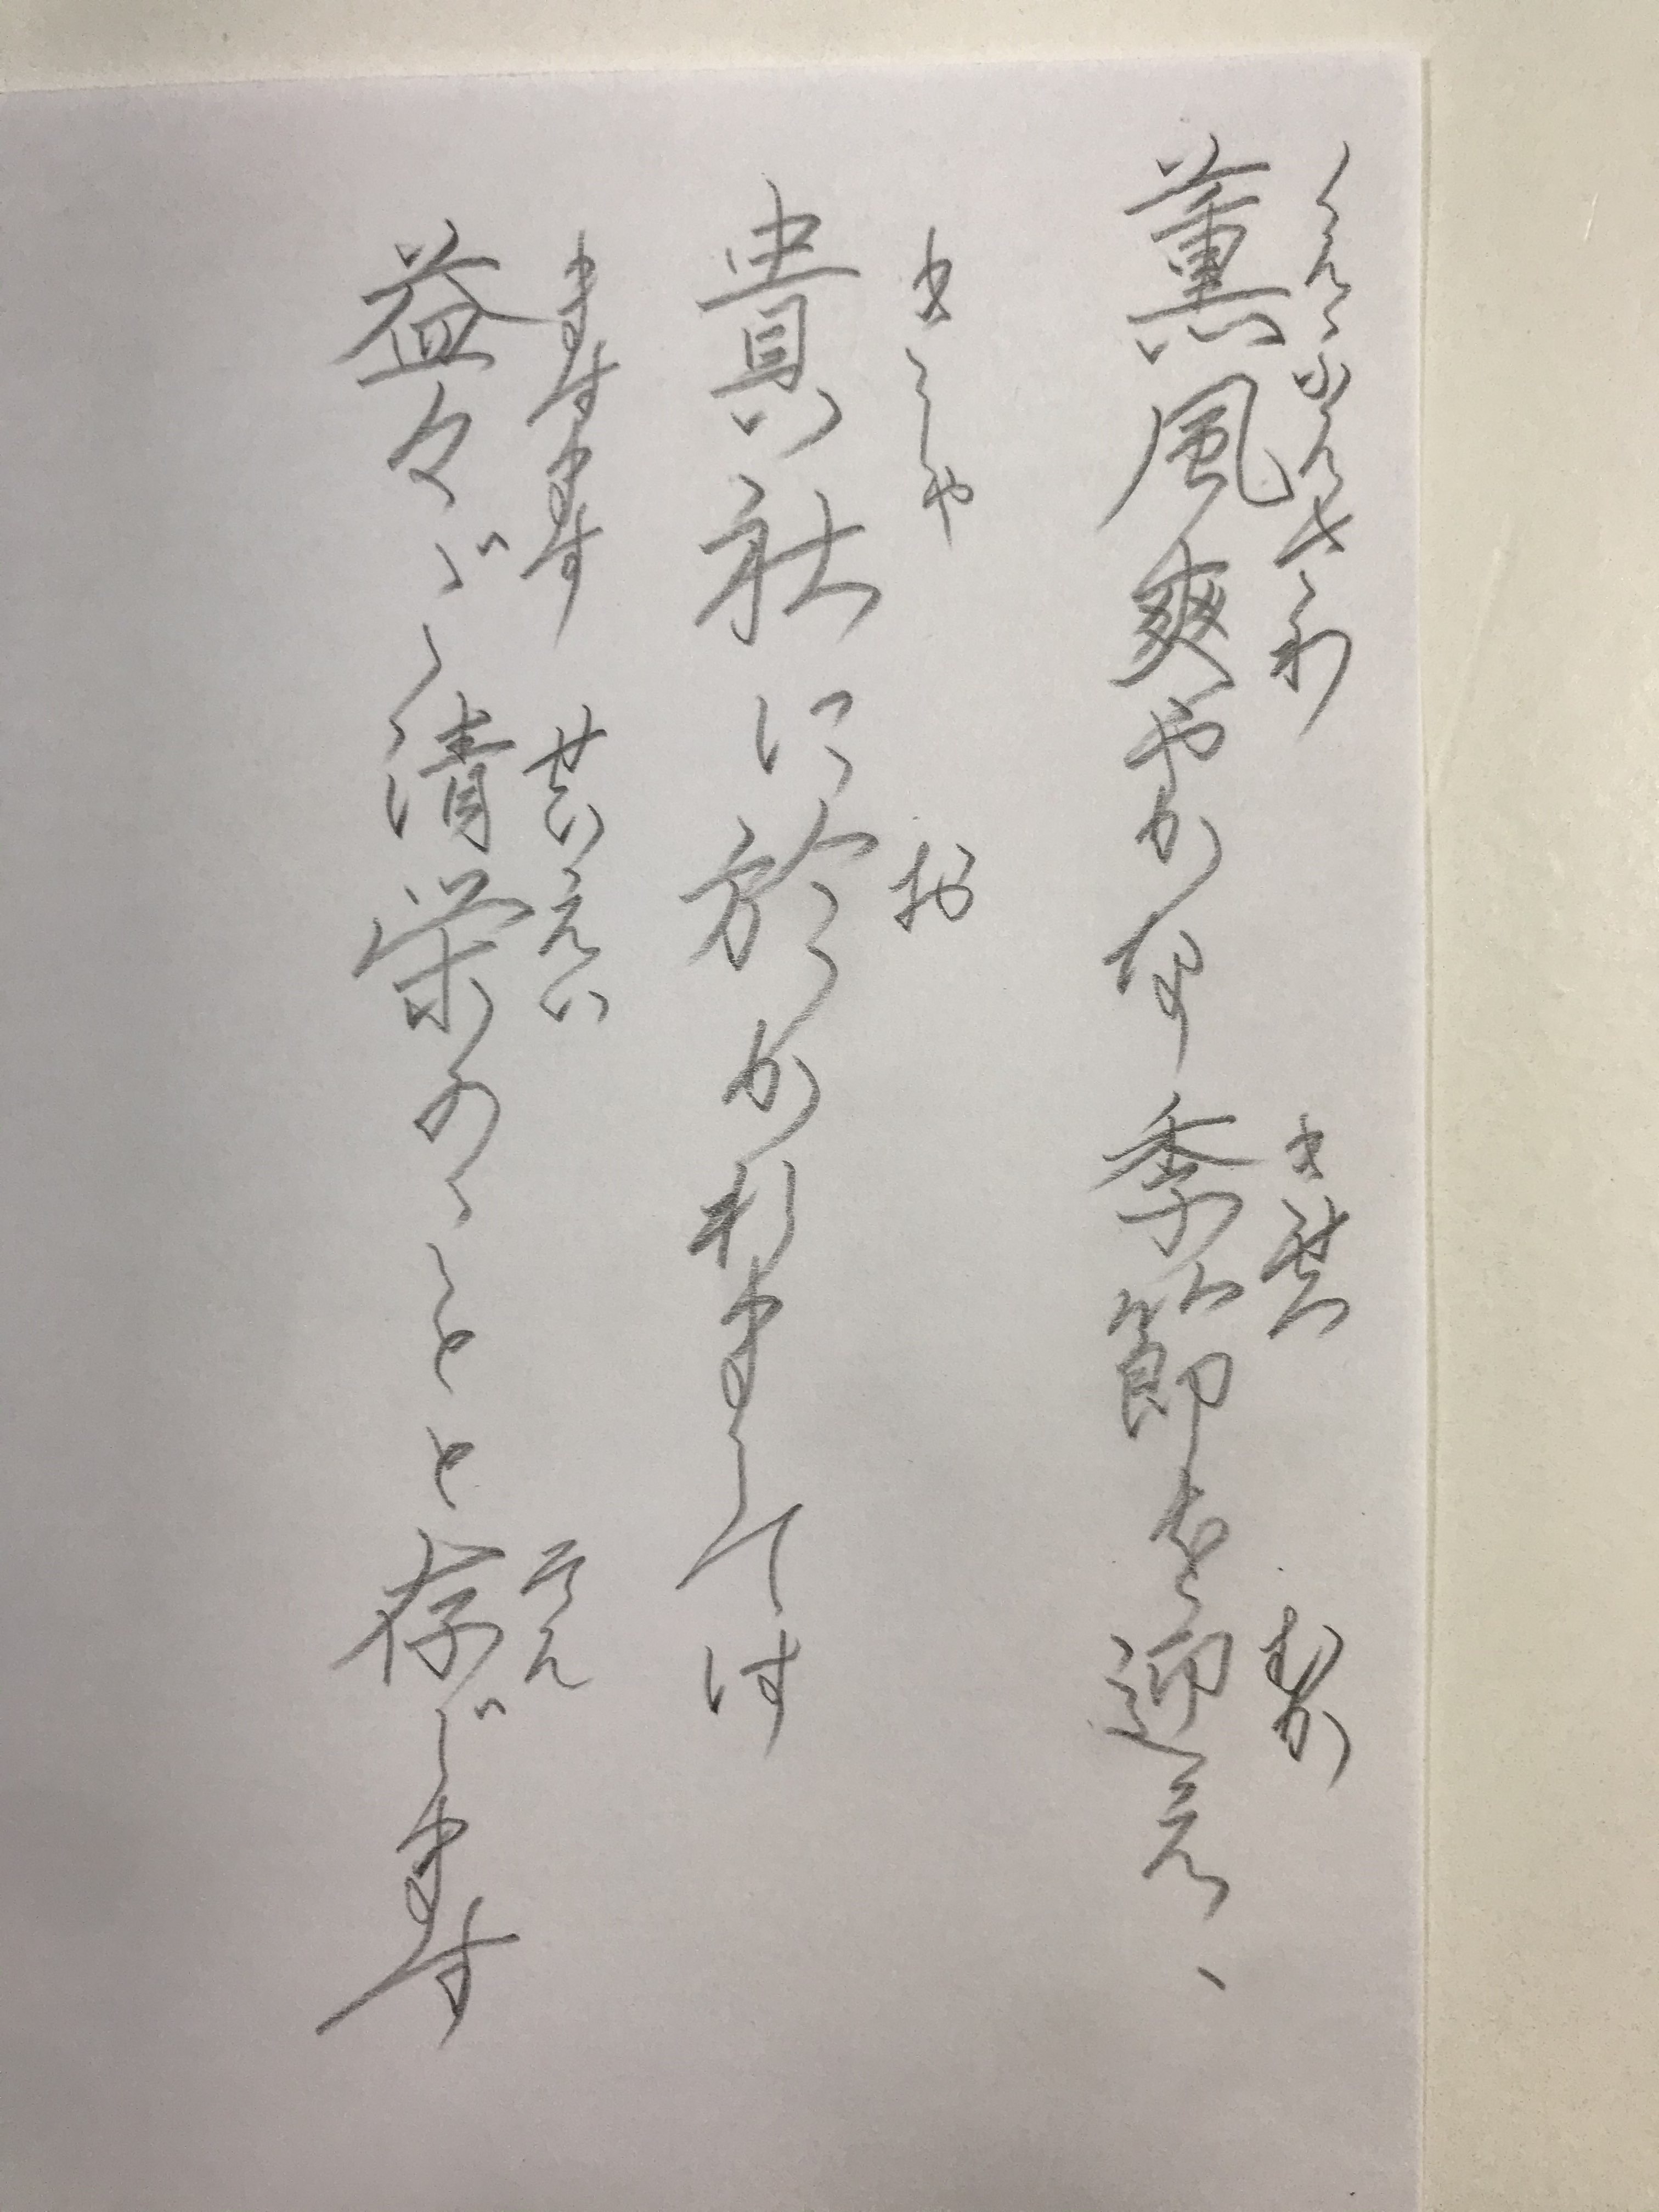 くんぷうさわ きせつ むか
薫風爽やかな季節を迎え、
きしゃ お
貴社に於かれましては
ますます せいえい ぞん
益々ご清栄のことと存じます